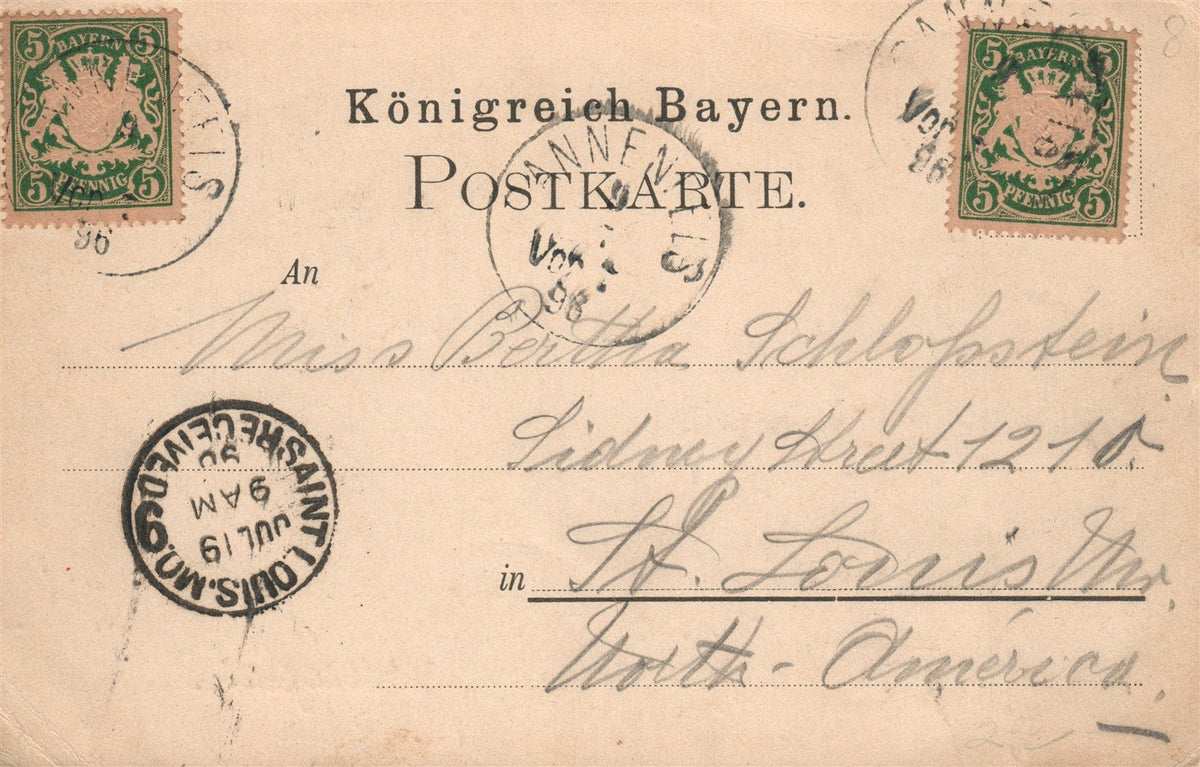 5 BAYERN 5
5 PFENNIG 5
96
Königreich Bayern.
POSTKARTE.
ANNENFELS
Vor
96
5 BAYERN 5
5 PFENNIG 5
Vor
96
8
An
Miss Bertha Schloßstein
Sidney Street 1210.
in St. Louis Mo.
North-América.
SAINT LOUIS. MO. RECEIVED
6
JUL 19
9 AM
96